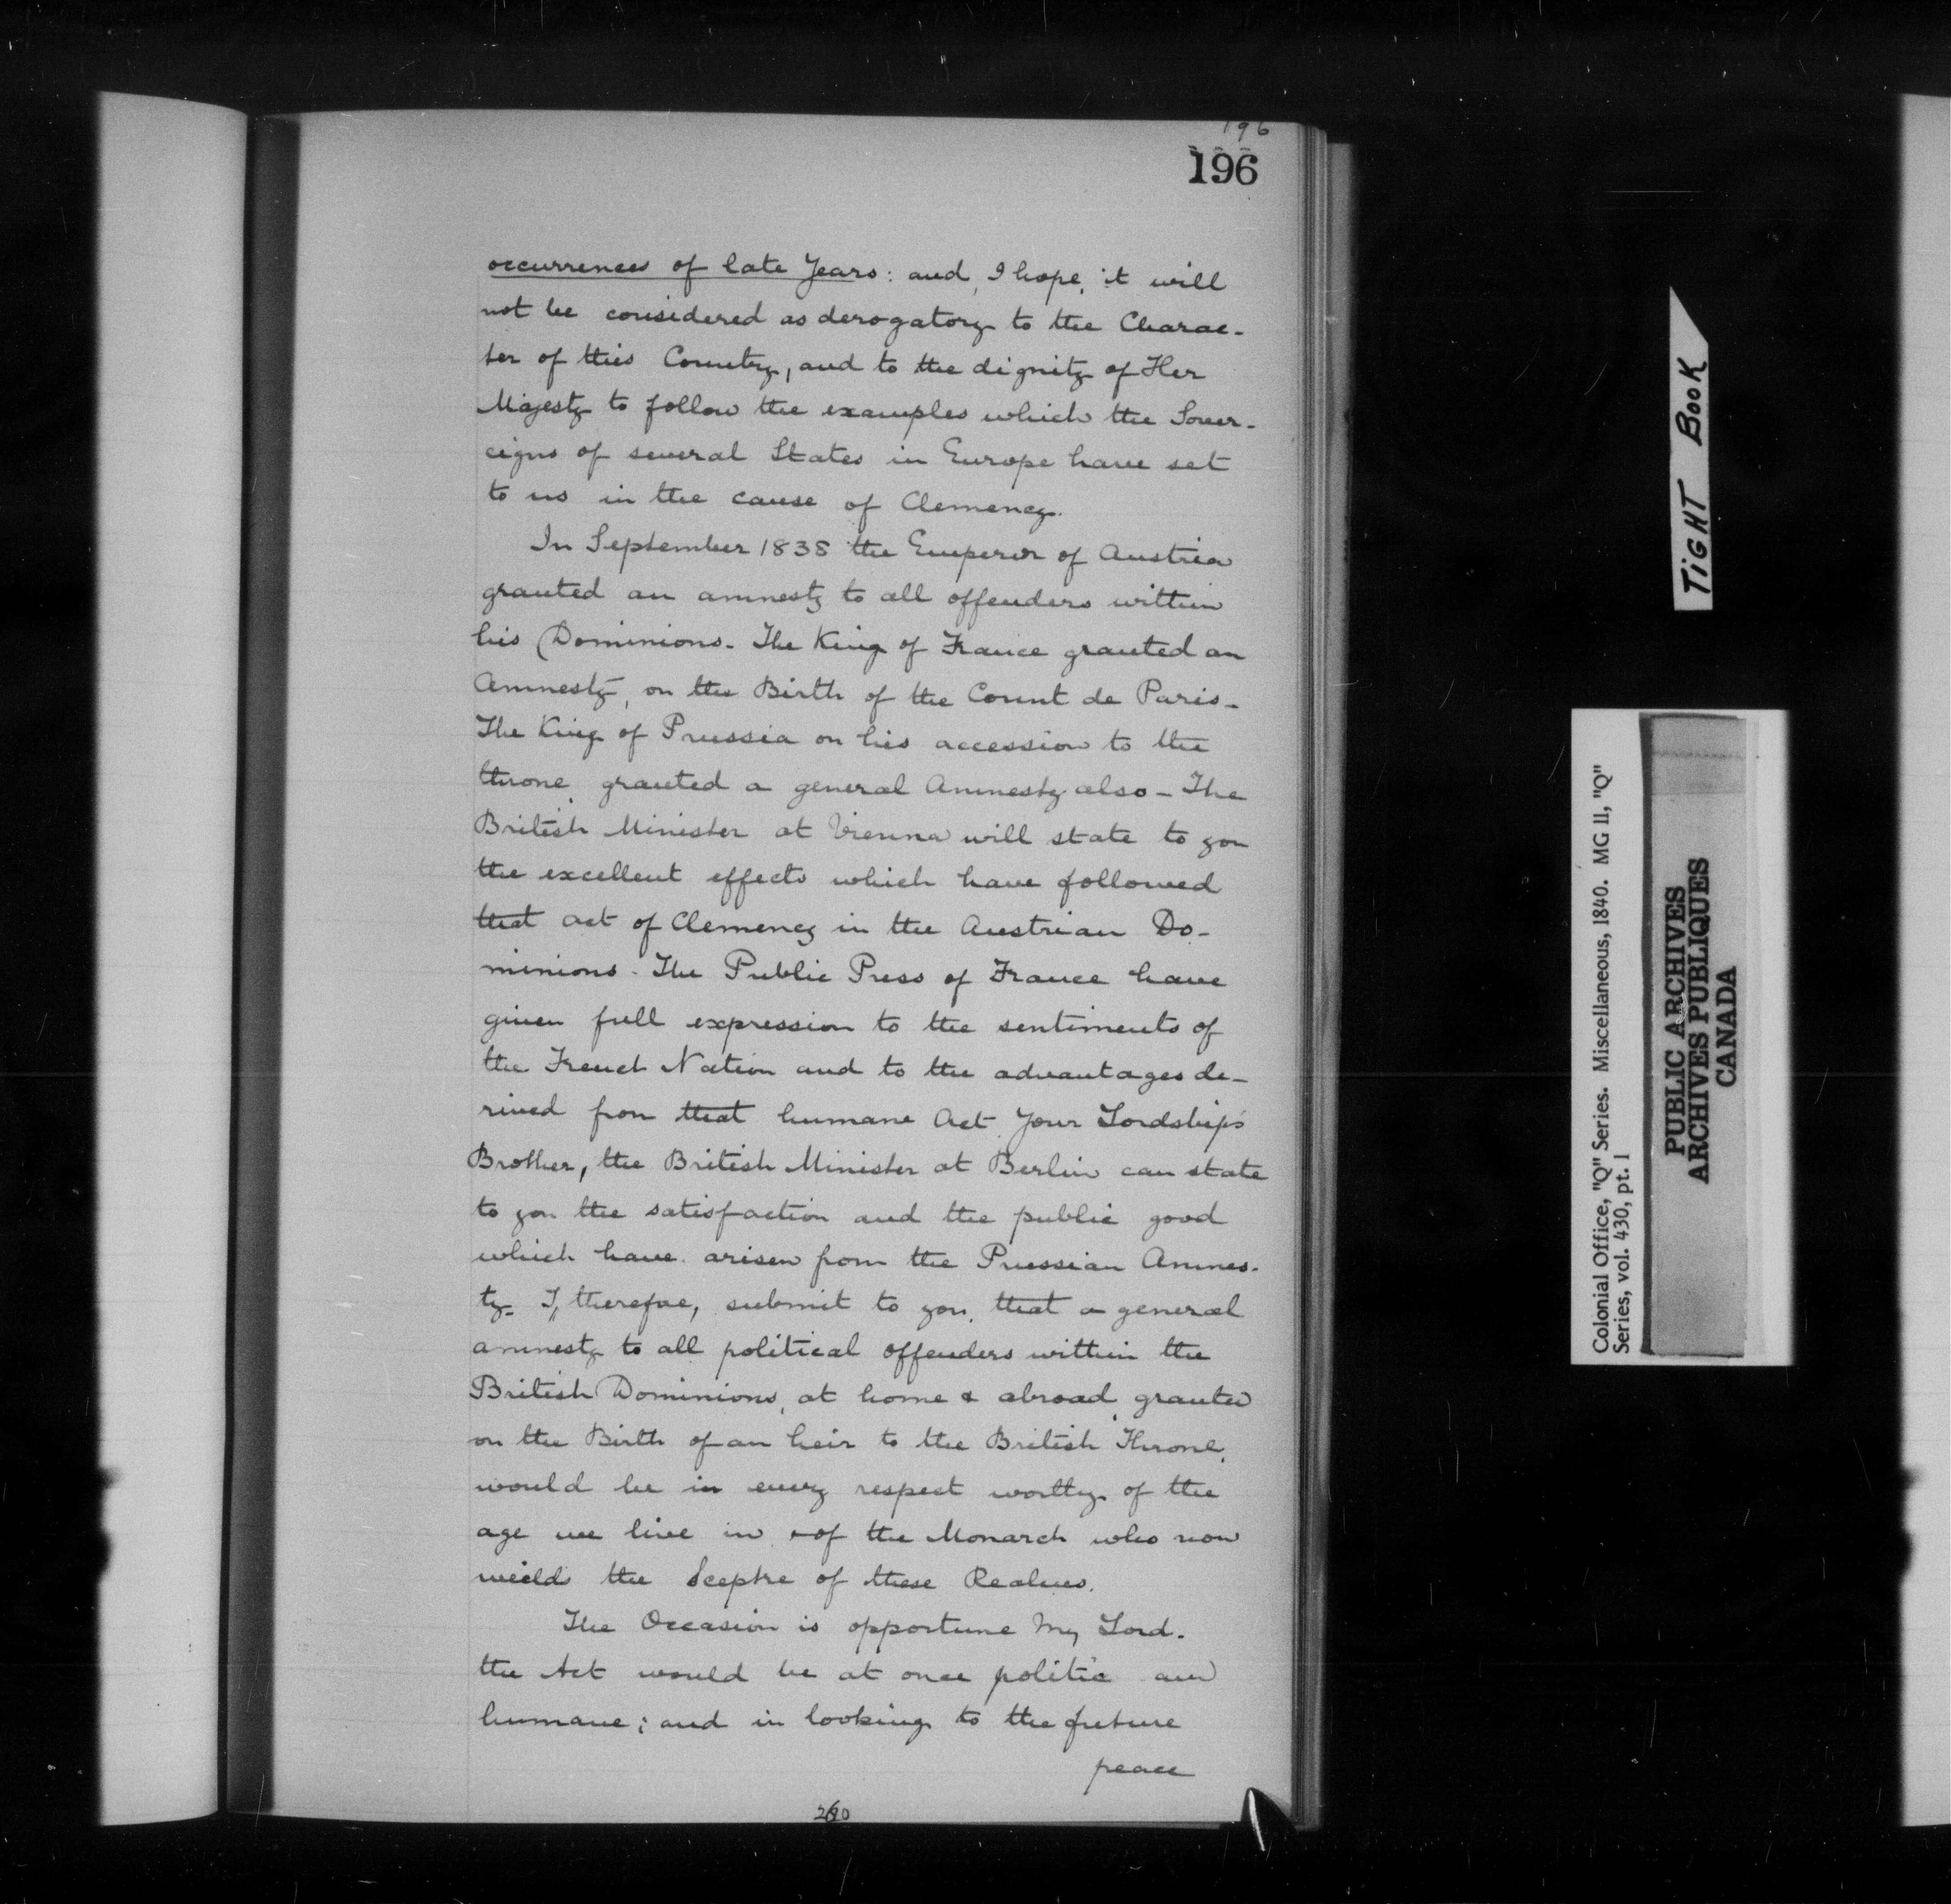 196
196
occurrences of late Years: and, I hope, it will
not be considered as derogatory to the Charac-
ter of this Country, and to the dignity of Her
Majesty to follow the examples which the Sover-
eigns of several States in Europe have set
to us in the cause of Clemency.
In September 1838 the Emperor of Austria
granted an amnesty to all offenders within
his Dominions. The King of France granted an
Amnesty, on the Birth of the Count de Paris-
The King of Prussia on his accession to the
throne, granted a general Amnesty also - The
British Minister at Vienna will state to you
the excellent effects which have followed
that act of Clemency in the Austrian Do-
minions. The Public Press of France have
given full expression to the sentiments of
the French Nation and to the advantages de-
rived from that humane Act. Your Lordship's
Brother, the British Minister at Berlin can state
to you the satisfaction and the public good
which have arisen from the Prussian Amnes-
ty- I, therefore, submit to you, that a general
amnesty to all political offenders within the
British Dominions, at home & abroad, granted
on the Birth of an heir to the British Throne,
would be in every respect worthy of the
age we live in, & of the Monarch who now
wields the Sceptre of these Realms.
The Occasion is opportune My Lord.
the Act would be at once politic and
humane; and in looking to the future
peace
TIGHT BOOK
Colonial Office, "Q" Series. Miscellaneous, 1840. MG 11, "Q"
Series, vol. 430, pt. 1
PUBLIC ARCHIVES
ARCHIVES PUBLIQUES
CANADA